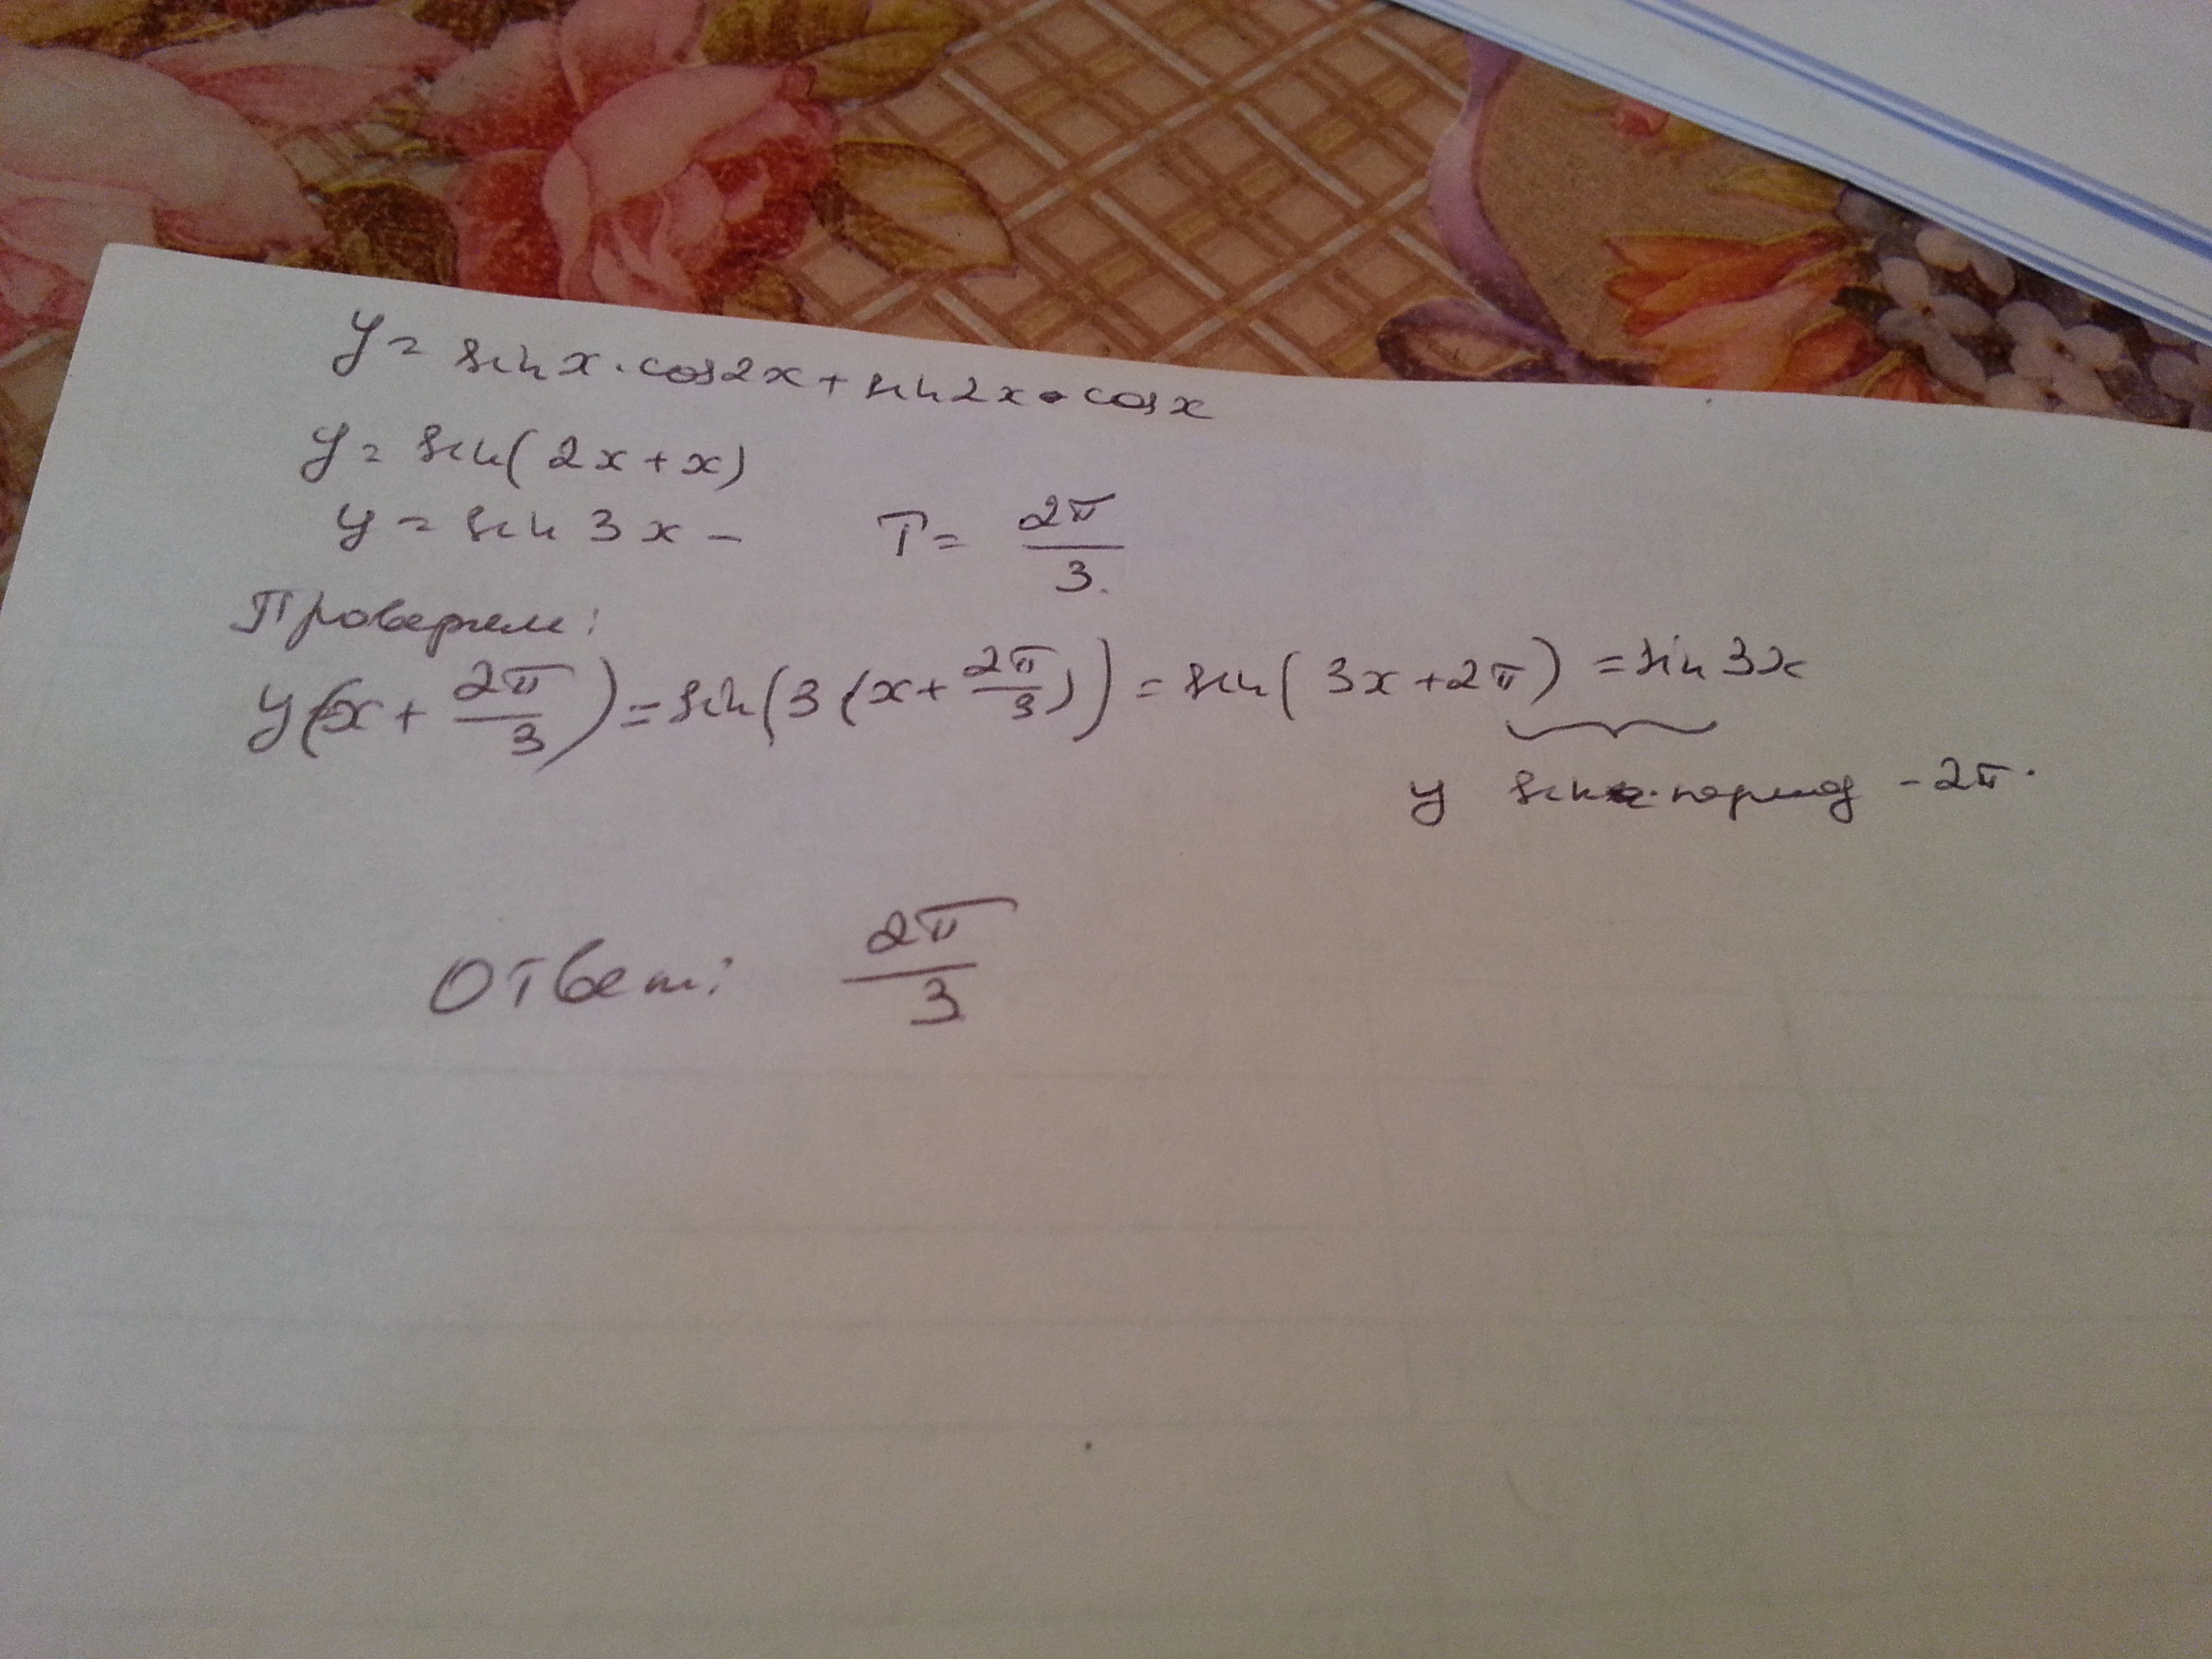 y = sin x · cos2x + sin2x · cos x
y = sin( 2x + x)
y = sin 3x – T = 2π/3.
Проверим:
y(x + 2π/3) = sin(3(x + 2π/3)) = sin( 3x + 2π) = sin 3x
у sin период – 2π.
Ответ: 2π/3